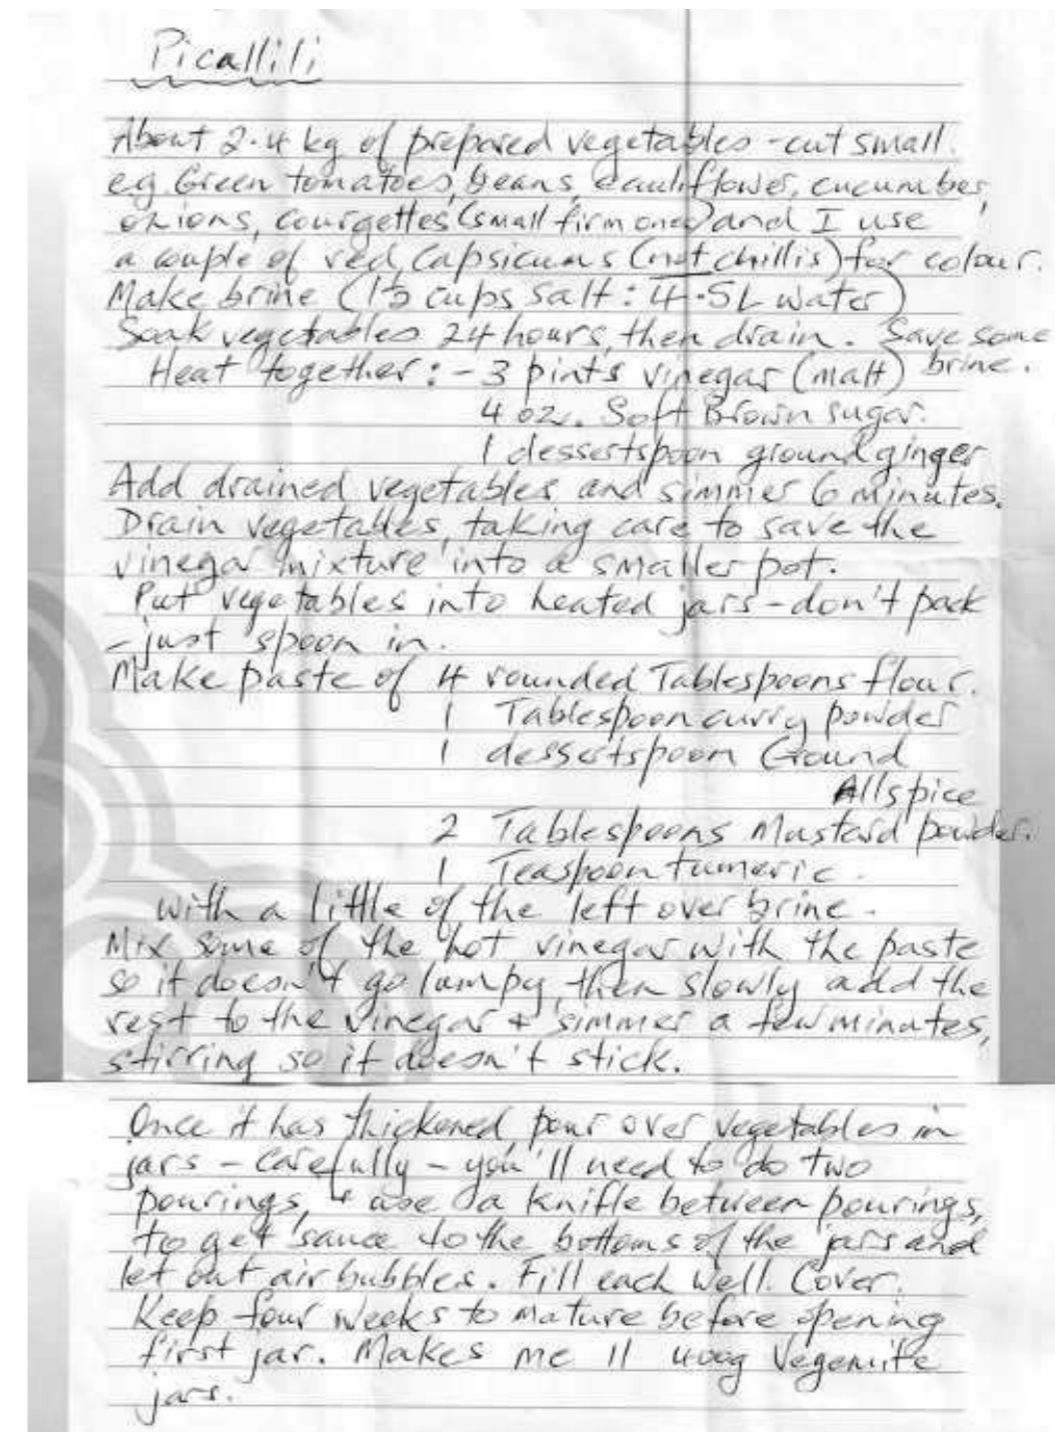 Picallili
About 2.4 kg of prepared vegetables - cut small.
eg Green tomatoes, beans, cauliflower, cucumber,
onions, courgettes (small firm ones) and I use
a couple of red capsicums (not chillis) for colour.
Make brine (1½ cups salt : 4.5L water)
Soak vegetables 24 hours, then drain. Save some
brine.
Heat together :- 3 pints vinegar (malt)
4 oz. Soft Brown sugar.
1 dessertspoon ground ginger
Add drained vegetables and simmer 6 minutes.
Drain vegetables, taking care to save the
vinegar mixture into a smaller pot.
Put vegetables into heated jars - don't pack
- just spoon in.
Make paste of 4 rounded Tablespoons flour.
1 Tablespoon curry powder
1 dessertspoon Ground
Allspice
2 Tablespoons Mustard powder.
1 Teaspoon tumeric.
with a little of the left over brine.
Mix some of the hot vinegar with the paste
so it doesn't go lumpy, then slowly add the
rest to the vinegar + simmer a few minutes,
stirring so it doesn't stick.
Once it has thickened, pour over vegetables in
jars - carefully - you'll need to do two
pourings, + use a knifle between pourings,
to get sauce to the bottoms of the jars and
let out air bubbles. Fill each well. Cover.
Keep four weeks to mature before opening
first jar. Makes me 11 400g Vegemite
jars.